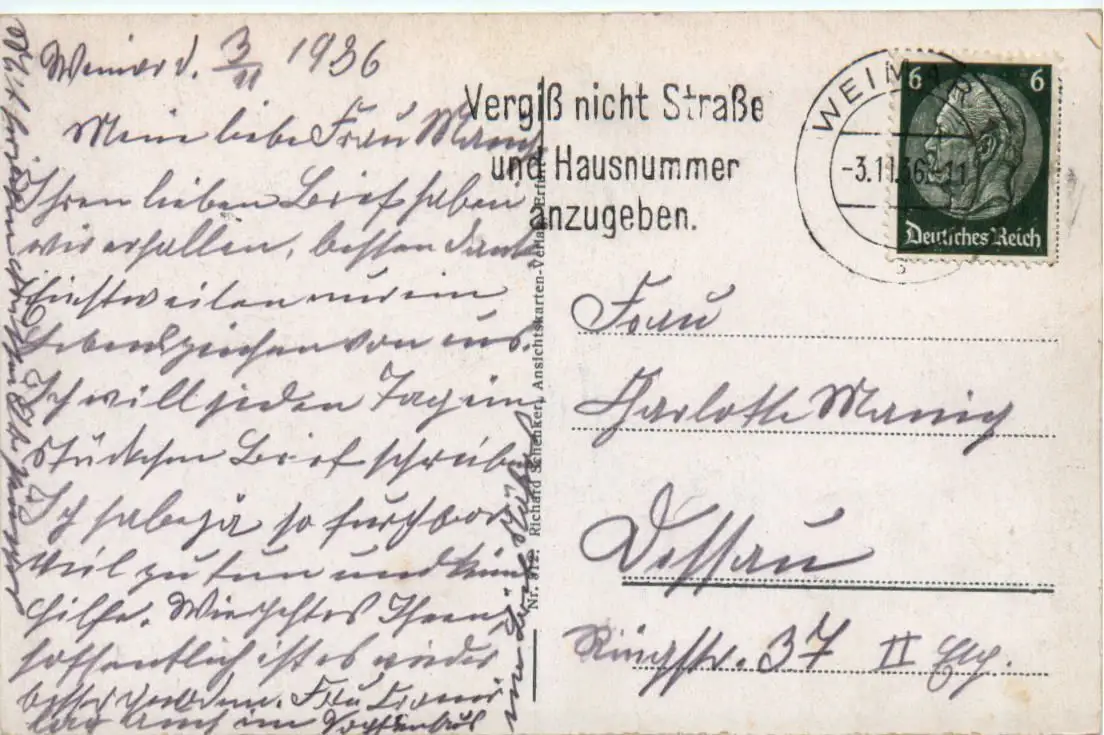 Weimar d. 3/11 1936
Meine liebe Frau Manig
Ihren lieben Brief haben
wir erhalten, besten Dank
Einstweilen nur ein
Lebenszeichen von uns.
Ich will jeden Tag ein
Stückchen Brief schreiben
Ich habe ja so furchtbar
viel zu tun und keine
Hilfe. Wie geht es Ihnen,
hoffentlich ist es wieder
besser geworden. Frau
lag auch im
Vergiß nicht Straße
und Hausnummer
anzugeben.
WEIMAR
-3.11.36
6 6
Deutsches Reich
Nr. 912. Richard Schenker, Ansichtskarten-Verlag, Erfurt
Frau
Charlotte Manig
Dessau
Ringstr. 37 II Etg.